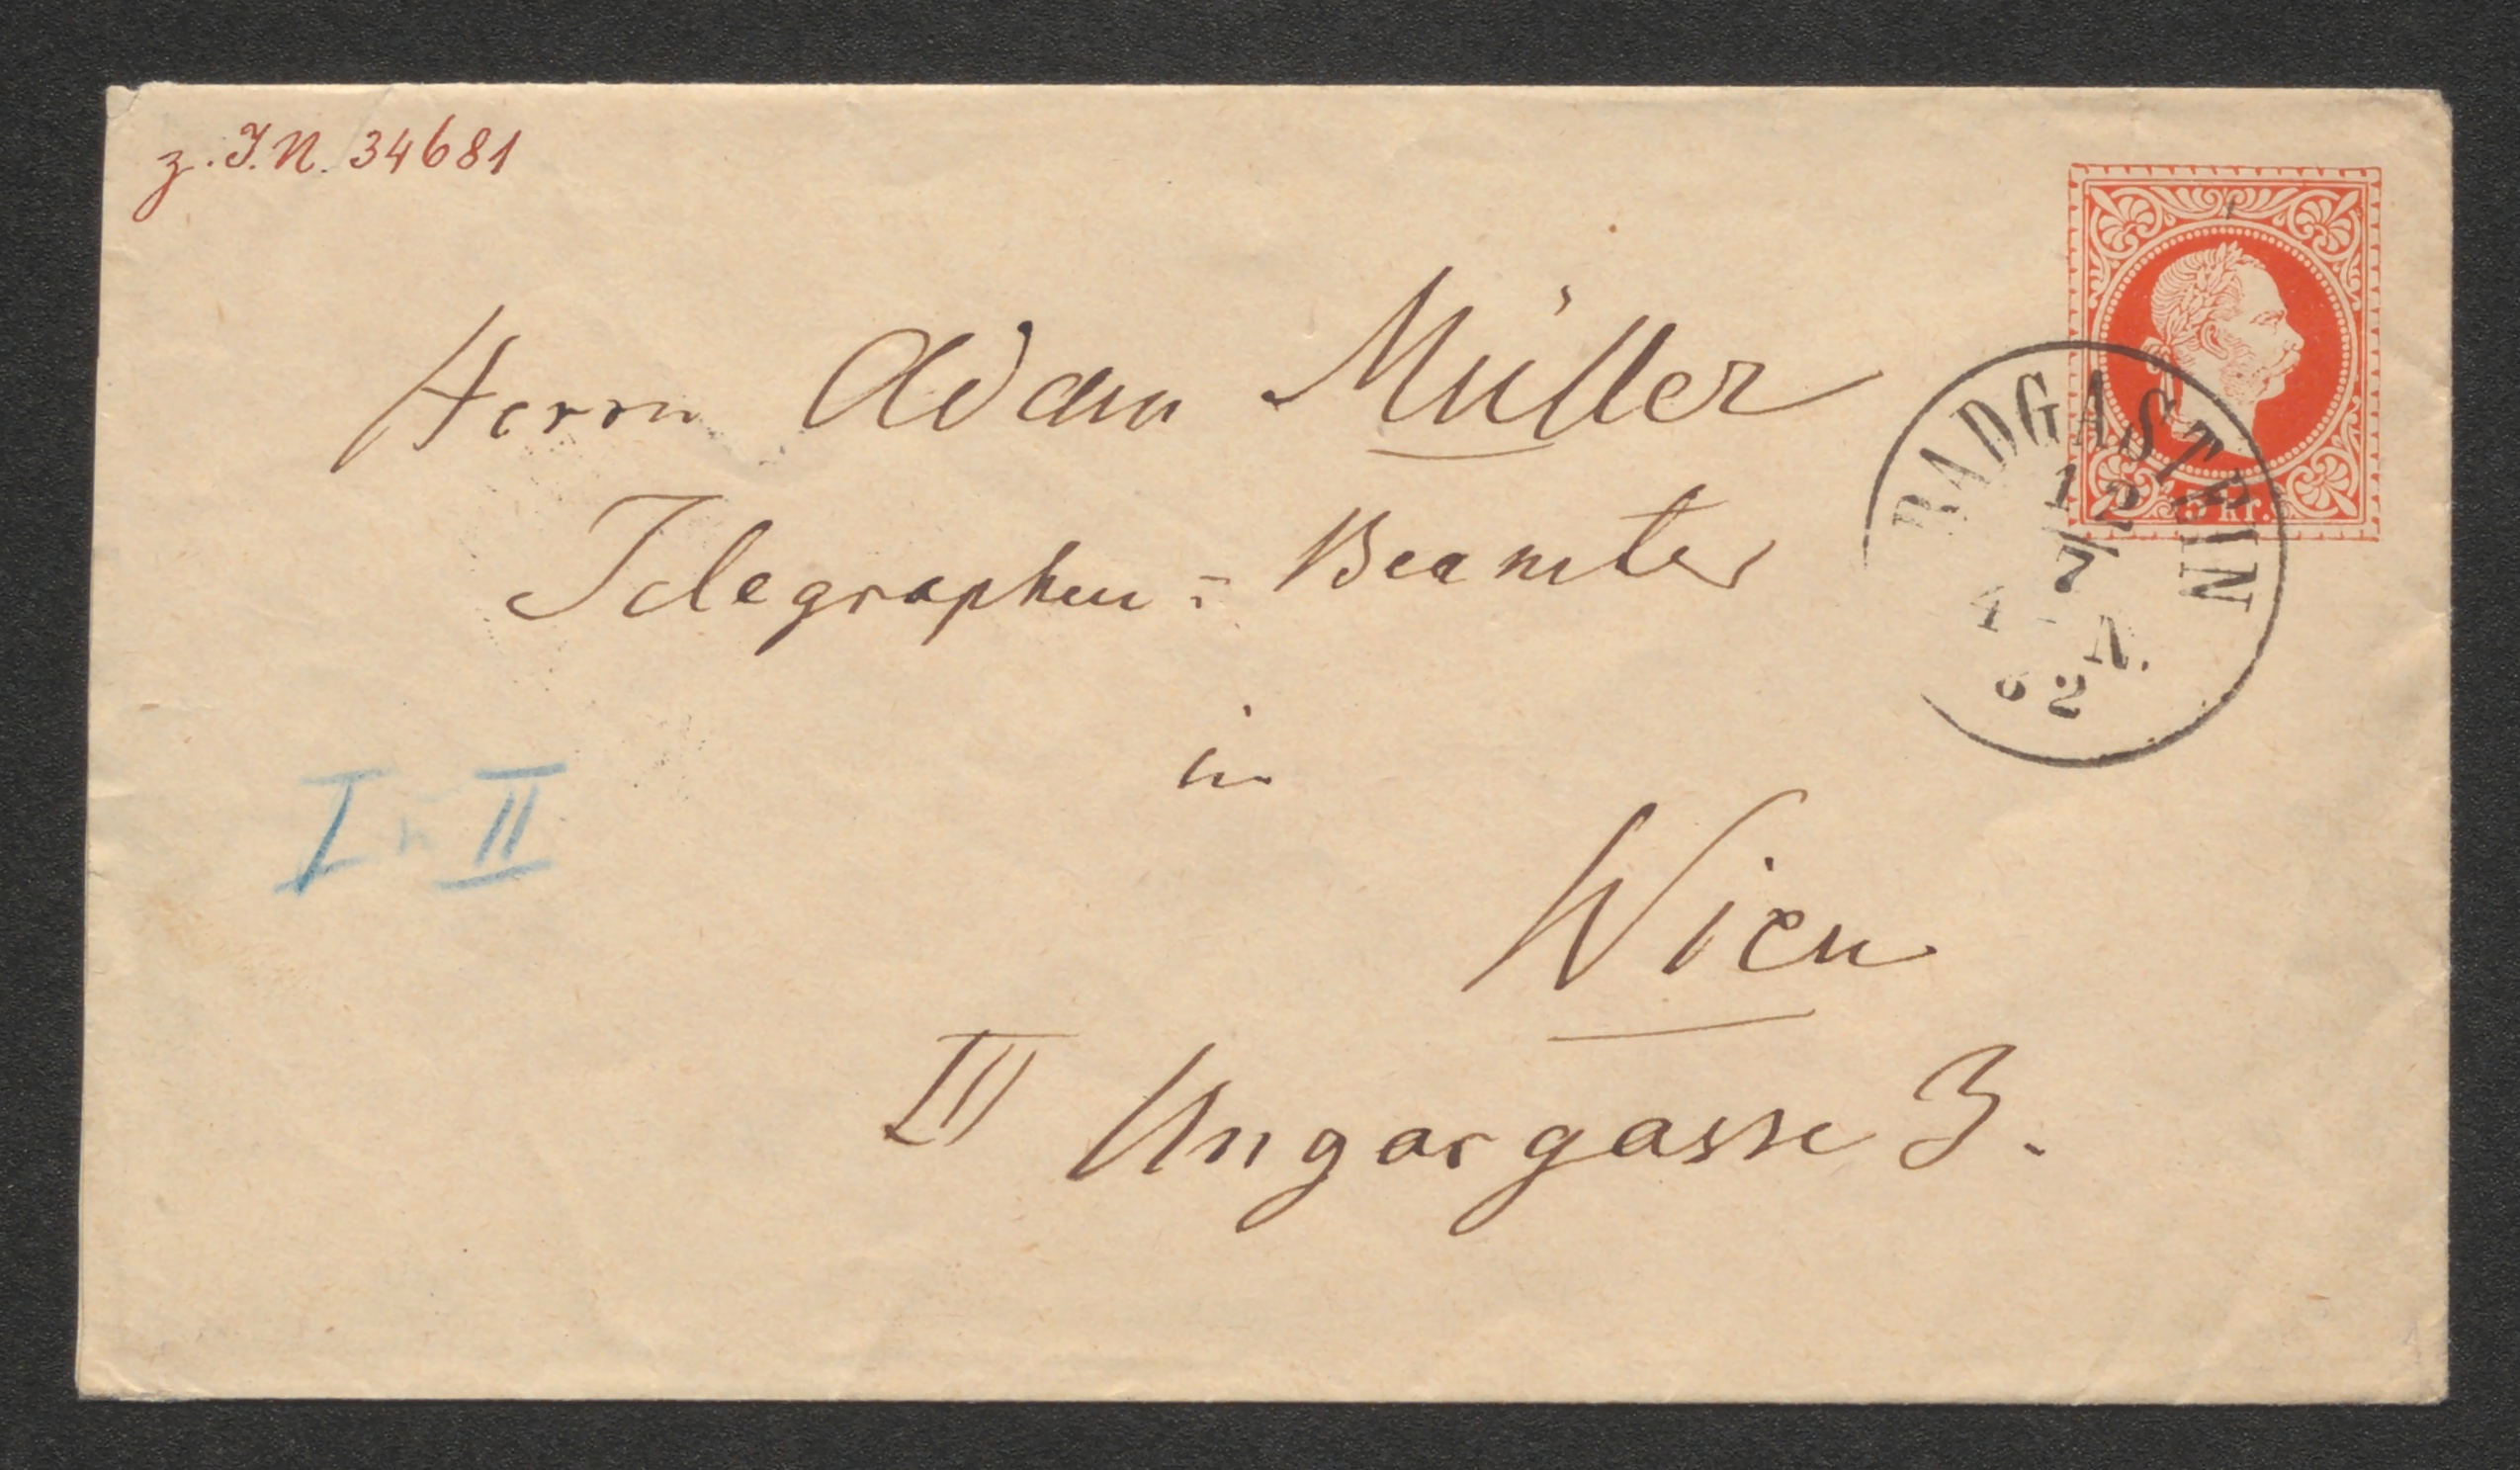 z. I.N. 34681
Herrn Adam Müller
Telegraphen-Beamter
in
Wien
III Ungargasse 3.
I u II
5 kr.
BADGASTEIN
12
7
4 - N.
82